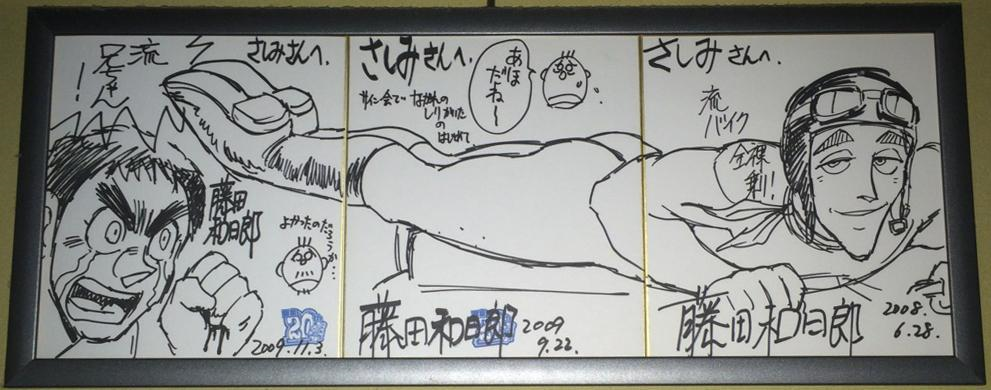 さしみさんへ.
流
兄ちゃん
!
藤田
和日郎
よかったのだ
ろうか…
20
2009.11.3.
さしみさんへ.
あほ
だね〜
サイン会で
ながれの
しりかいた
の
はじめて
藤田和日郎
2009
9.22.
さしみさんへ.
流
バイク
全裸
乗り!
藤田和日郎
2008.
6.28.